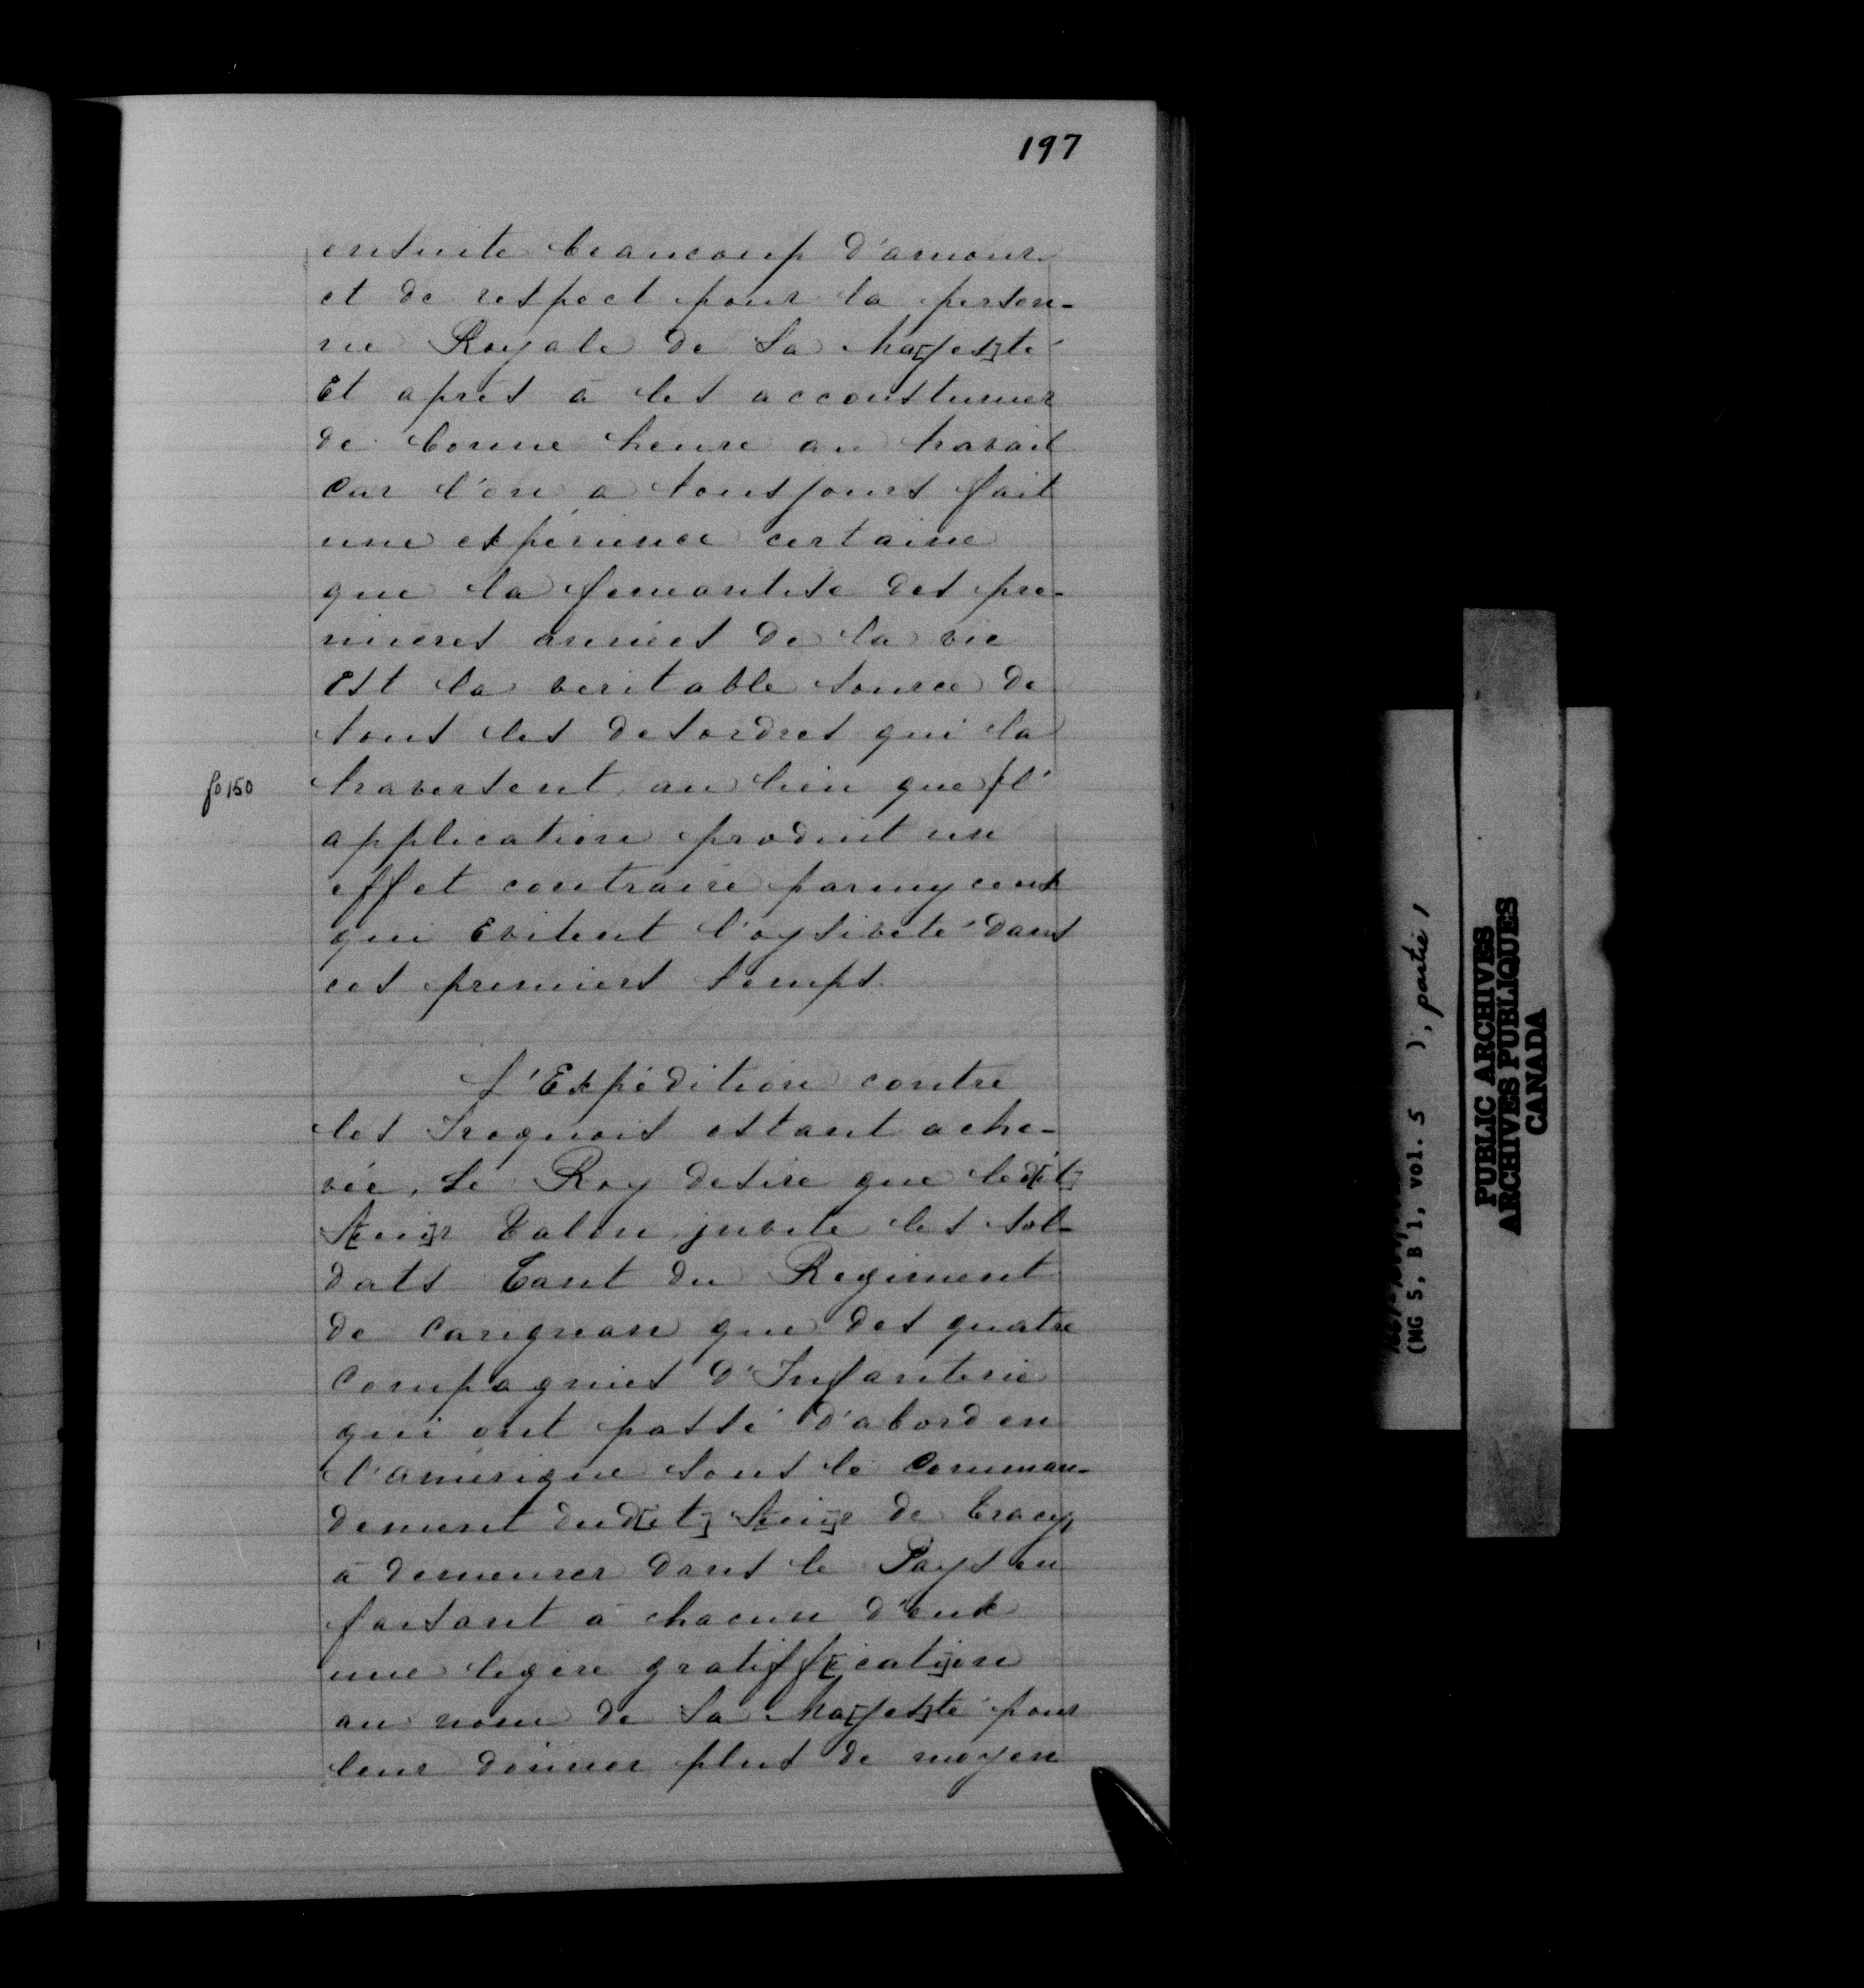 197
ensuite beaucoup d'amour
et de respect pour la person-
ne Royale de Sa Ma[jes]té
Et après à les accoustumer
de bonne heure au travail
Car l'on a tousjours fait
une expérience certaine
que la feneantise des pre-
mieres années de la vie
Est la veritable source de
tous les desordres qui la
fo 150
traversent, au lieu que / l'
application produit un
effet contraire parmy ceux
qui Evitent l'oysiveté dans
ces premiers temps.
L'Expédition contre
les Iroquois estant ache-
vée, Le Roy desire que led[it]
S[ieu]r Talon invite les sol-
dats Tant du Regiment
de Carignan que des quatre
Compagnies d'Infanterie
qui ont passé d'abord en
l'amérique sous le Comman-
dement dud[it] S[ieu]r de Tracy
à demeurer dans le Pays en
faisant à chacun d'eux
une legere gratiff[icati]on
au nom de Sa Ma[jes]té pour
leur donner plus de moyen
(MG 5, B 1, vol. 5 ), partie 1
PUBLIC ARCHIVES
ARCHIVES PUBLIQUES
CANADA